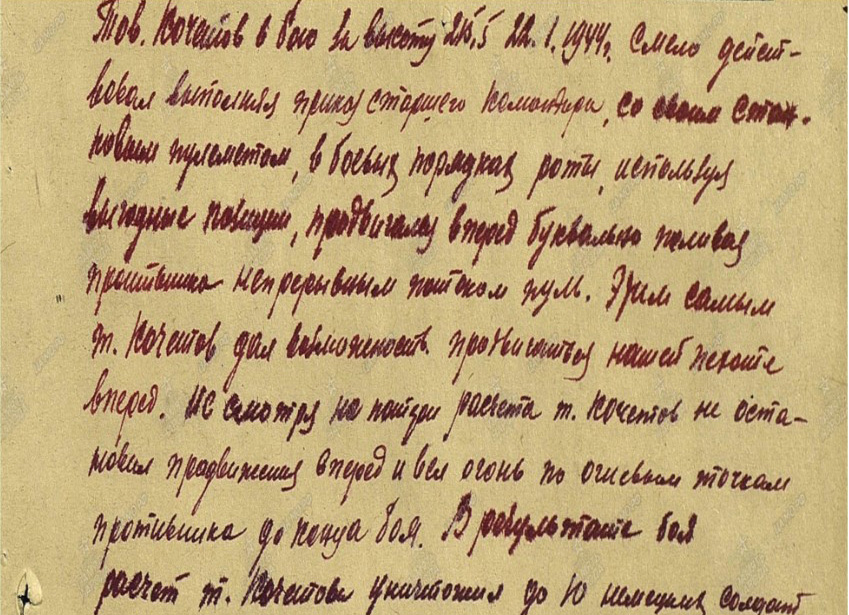 Тов. Кочетов в бою за высоту 215,5 22.1.1944г. смело дейст-
вовал выполняя приказ старшего командира, со своим стан-
ковым пулеметом, в боевых порядках роты, используя
выгодные позиции, продвигался вперед буквально поливая
противника непрерывным потоком пуль. Этим самым
т. Кочетов дал возможность продвигаться нашей пехоте
вперед. Не смотря на потери расчета т. Кочетов не оста-
новил продвижения вперед и вел огонь по огневым точкам
противника до конца боя. В результате боя
расчет т. Кочетова уничтожил до 10 немецких солдат